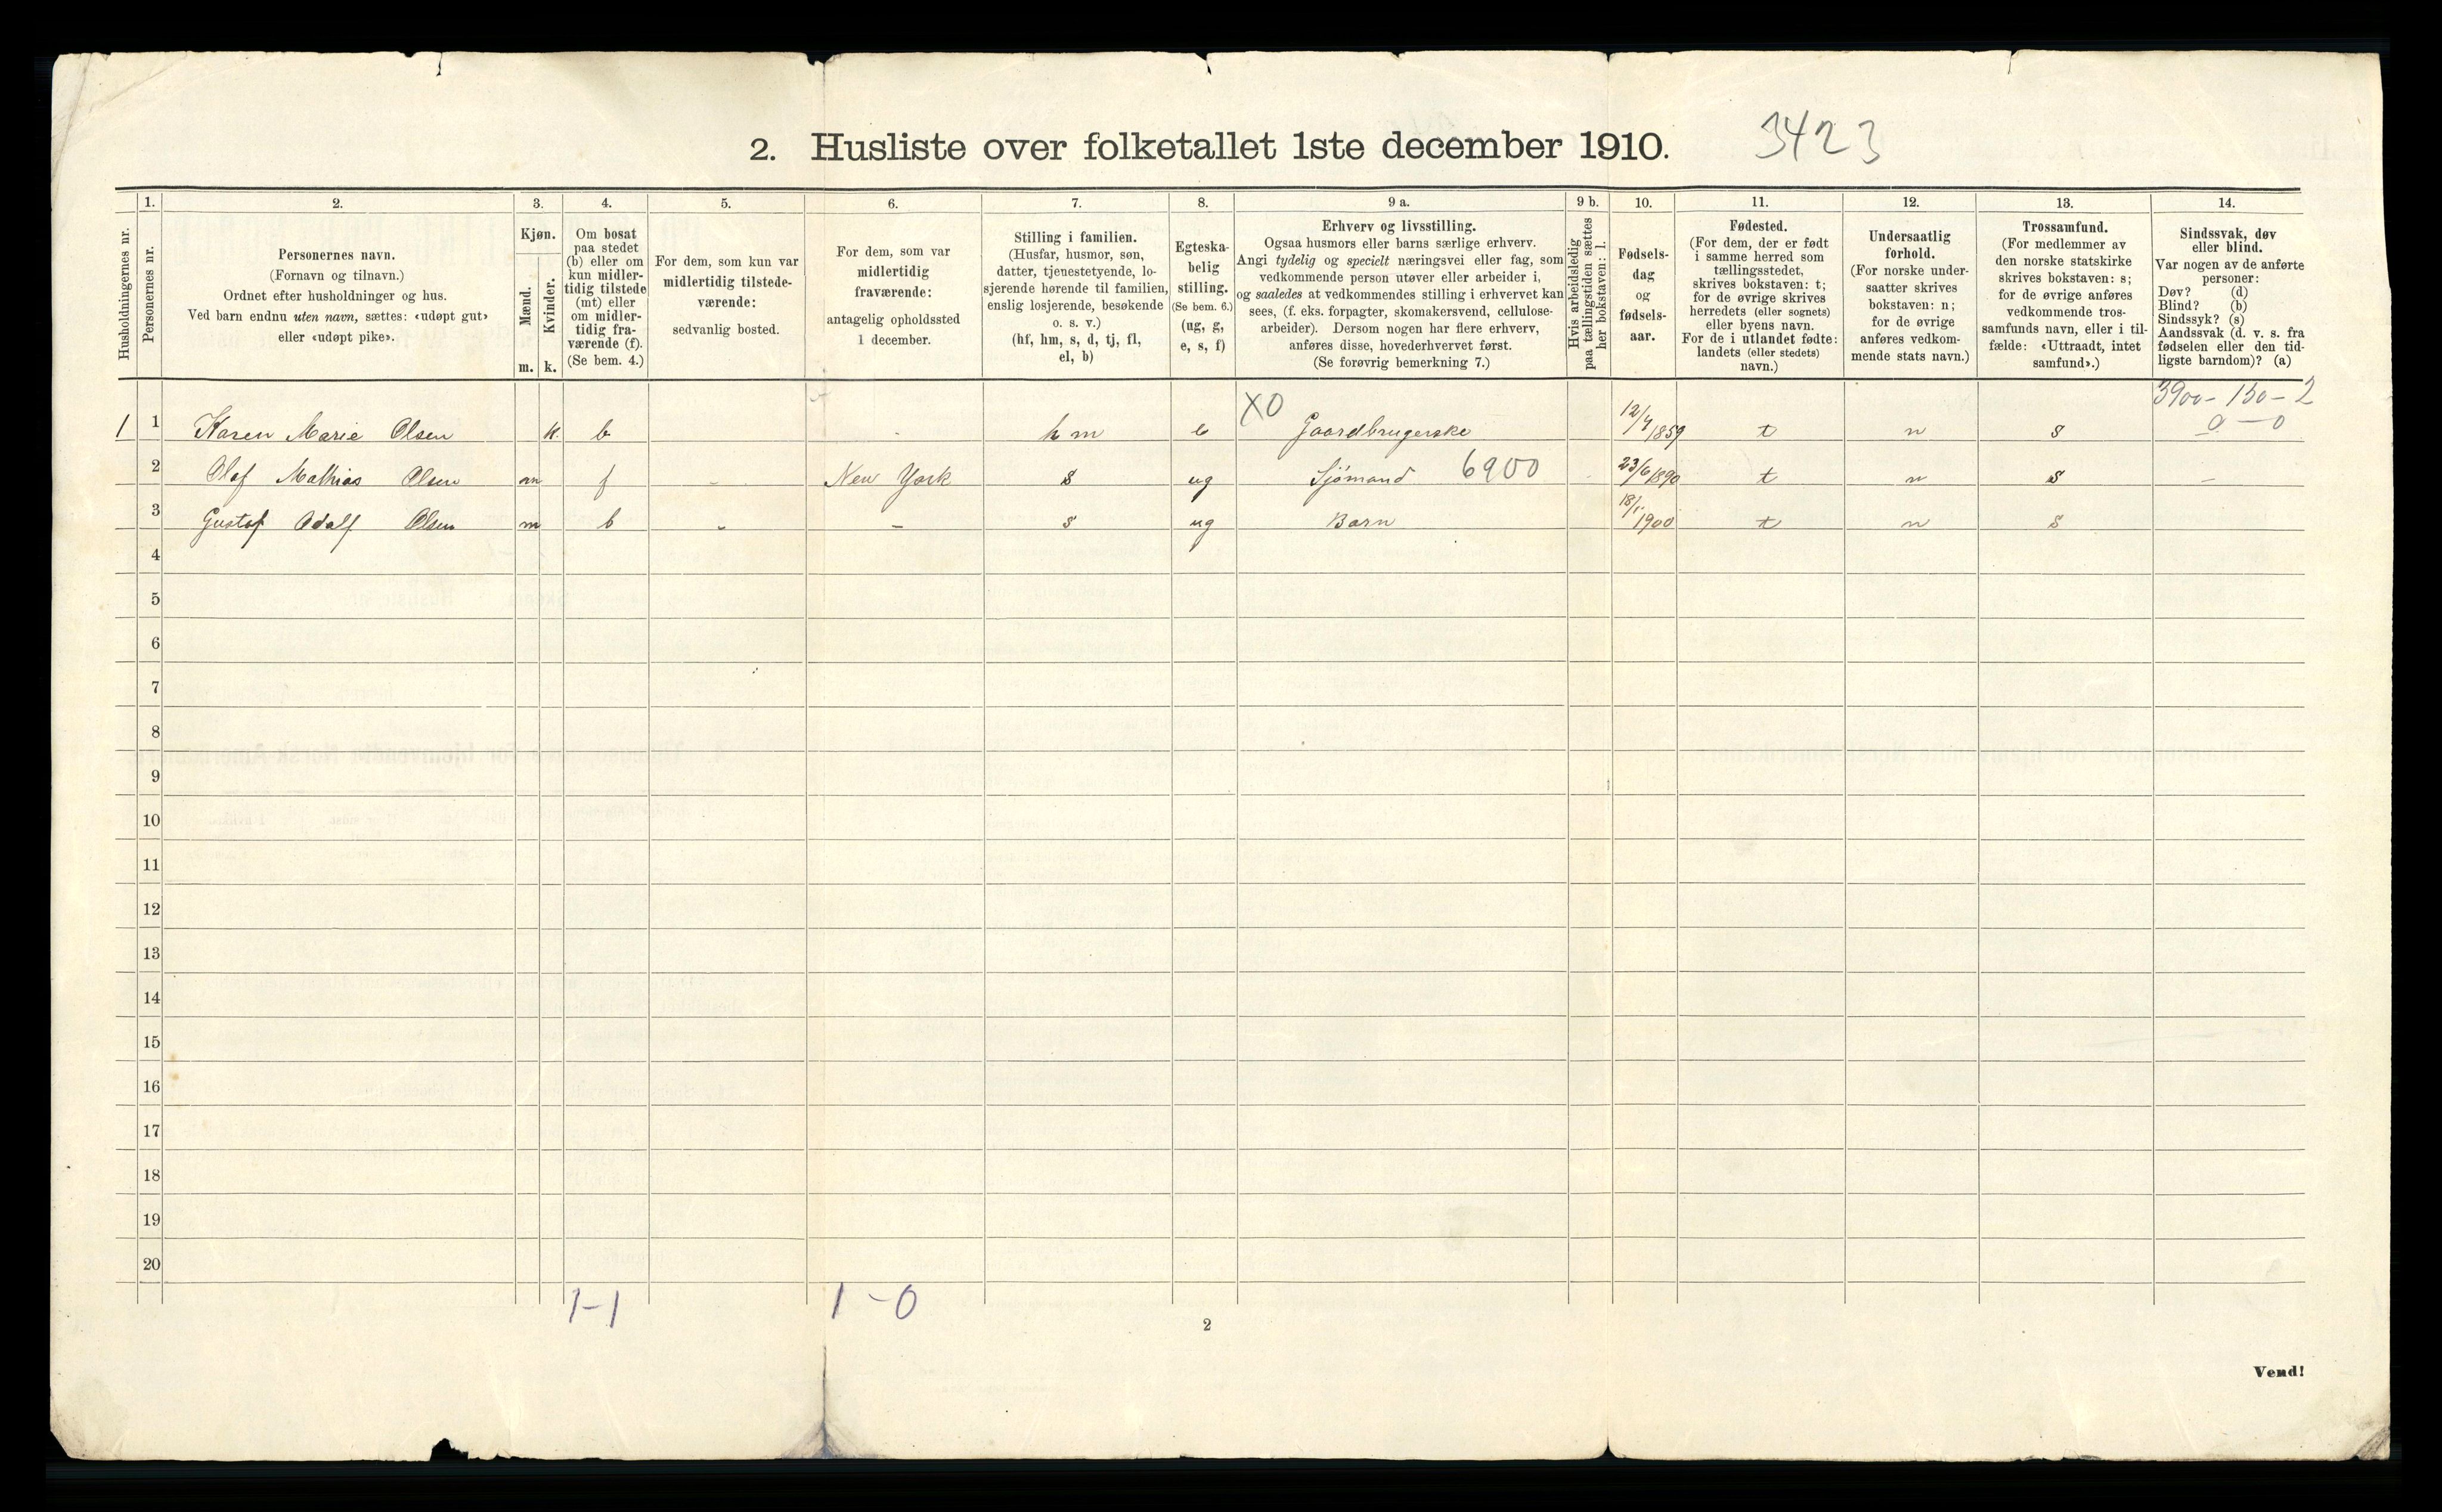 2. Husliste over folketallet 1ste december 1910. 3423
Husholdningernes nr.
1.
Personernes nr.
2.
Personernes navn.
(Fornavn og tilnavn.)
Ordnet efter husholdninger og hus.
Ved barn endnu uten navn, sættes: «udøpt gut»
eller «udøpt pike».
3.
Kjøn.
Mænd.
Kvinder.
m. k.
4.
Om bosat
paa stedet
(b) eller om
kun midler-
tidig tilstede
(mt) eller
om midler-
tidig fra-
værende (f).
(Se bem. 4.)
5.
For dem, som kun var
midlertidig tilstede-
værende:
sedvanlig bosted.
6.
For dem, som var
midlertidig
fraværende:
antagelig opholdssted
1 december.
7.
Stilling i familien.
(Husfar, husmor, søn,
datter, tjenestetyende, lo-
sjerende hørende til familien,
enslig losjerende, besøkende
o. s. v.)
(hf, hm, s, d, tj, fl,
el, b)
8.
Egteska-
belig
stilling.
(Se bem. 6.)
(ug, g,
e, s, f)
9 a.
Erhverv og livsstilling.
Ogsaa husmors eller barns særlige erhverv.
Angi tydelig og specielt næringsvei eller fag, som
vedkommende person utøver eller arbeider i,
og saaledes at vedkommendes stilling i erhvervet kan
sees, (f. eks. forpagter, skomakersvend, cellulose-
arbeider). Dersom nogen har flere erhverv,
anføres disse, hovederhvervet først.
(Se forøvrig bemerkning 7.)
9 b.
Hvis arbeidsledig
paa tællingstiden sættes
her bokstaven: l.
10.
Fødsels-
dag
og
fødsels-
aar.
11.
Fødested.
(For dem, der er født
i samme herred som
tællingsstedet,
skrives bokstaven: t;
for de øvrige skrives
herredets (eller sognets)
eller byens navn.
For de i utlandet fødte:
landets (eller stedets)
navn.)
12.
Undersaatlig
forhold.
(For norske under-
saatter skrives
bokstaven: n;
for de øvrige
anføres vedkom-
mende stats navn.)
13.
Trossamfund.
(For medlemmer av
den norske statskirke
skrives bokstaven: s;
for de øvrige anføres
vedkommende tros-
samfunds navn, eller i til-
fælde: «Uttraadt, intet
samfund».)
14.
Sindssvak, døv
eller blind.
Var nogen av de anførte
personer:
Døv? (d)
Blind? (b)
Sindssyk? (s)
Aandssvak (d. v. s. fra
fødselen eller den tid-
ligste barndom)? (a)
3900 - 150 - 2
0 - 0
1 1 Karen Marie Olsen k. b - hm e XO Gaardbrugerske 12/4 1859 t n s
2 Olaf Mathias Olsen m f - New York s ug Sjømand 6900 23/6 1890 t n s -
3 Gustof Odalf Olsen m b - - s ug Barn 18/1 1900 t n s
4
5
6
7
8
9
10
11
12
13
14
15
16
17
18
19
20
1-1 1-0
2
Vend!